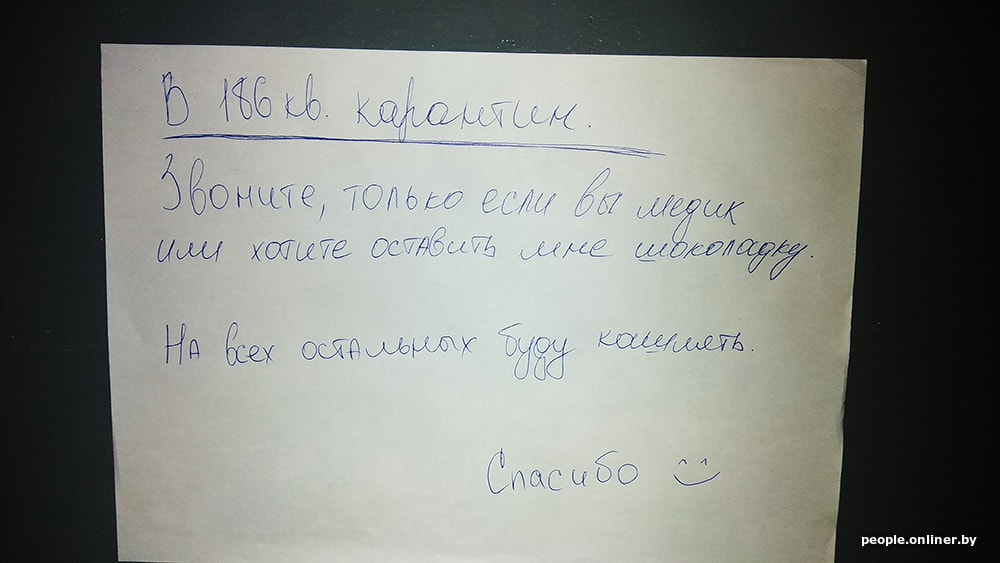 В 186 кв. карантин.
Звоните, только если вы медик
или хотите оставить мне шоколадку.
На всех остальных буду кашлять.
Спасибо ^^
people.onliner.by